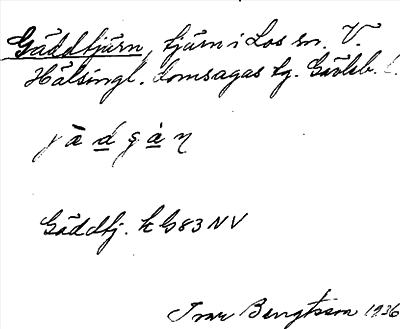 Gäddtjärn, tjärn i Los sn. V.
Hälsingl. Lomsagas tg. Gävleb. l.
Gäddtj. k G83 NV
Ivar Bengtsson 1936